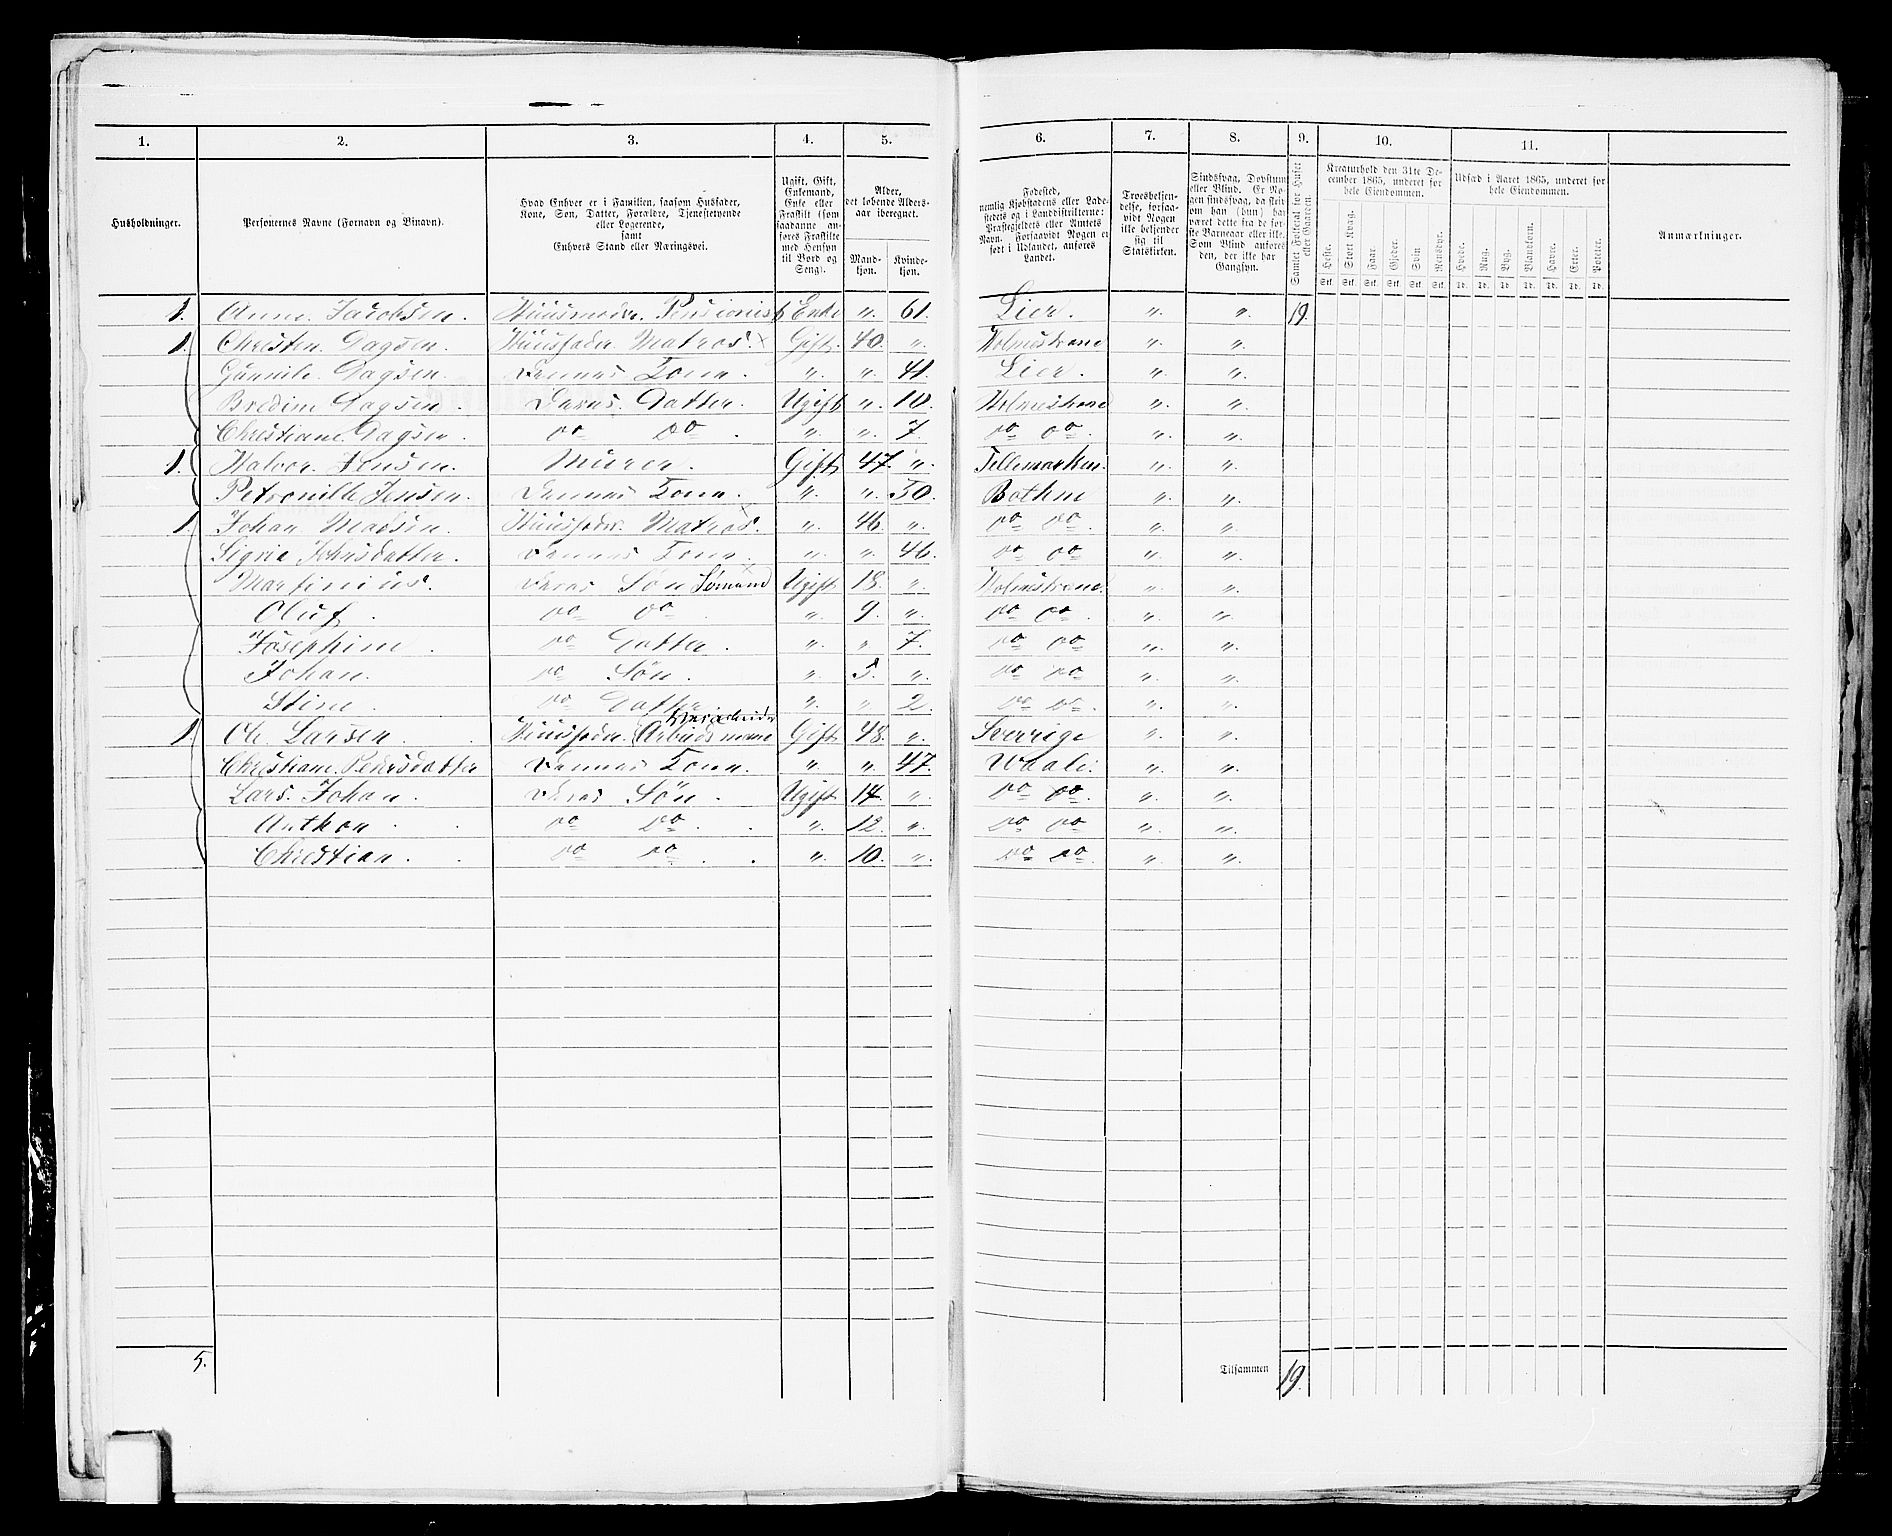 1. 2. 3. 4. 5. 6. 7. 8. 9. 10. 11.
Husholdninger.
Personernes Navne (Fornavn og Binavn).
Hvad Enhver er i Familien, saasom Husfader,
Kone, Søn, Datter, Forældre, Tjenestetyende
eller Logerende,
samt
Enhvers Stand eller Næringsvei.
Ugift, Gift,
Enkemand,
Enke eller
Fraskilt (som
saadanne an-
føres Fraskilte
med Hensyn
til Bord og
Seng).
Alder,
det løbende Alders-
aar iberegnet.
Mand-
kjøn.
Kvinde-
kjøn.
Fødested,
nemlig Kjøbstadens eller Lade-
stedets og i Landdistrikterne:
Præstegjeldets eller Amtets
Navn. Forsaavidt Nogen er
født i Udlandet, anføres
Landet.
Troesbekjen-
delse, forsaa-
vidt Nogen
ikke bekjender
sig til
Statskirken.
Sindssvag, Døvstum
eller Blind. Er No-
gen sindssvag, da skri-
ves om han (hun) har
været dette fra de før-
ste Barneaar eller ikke.
Som Blind anføres
den, der ikke har
Gangsyn.
Samlet Folketal for Huset
eller Gaarden.
Kreaturhold den 31te De-
cember 1865, underet for
hele Eiendommen.
Heste. Stort Kvæg. Faar. Gjeder. Svin Rensdyr.
Stk. Stk. Stk. Stk. Stk. Stk.
Udsæd i Aaret 1865, underet for
hele Eiendommen.
Hvede. Rug. Byg. Blandkorn. Havre. Erter. Poteter.
Td. Td. Td. Td. Td. Td. Td.
Anmærkninger.
1. Anne Jacobsen. Huusmoder. Pensionist Enke „. 61. Lier. „. „. 19.
1. Christen Dagsen. Huusfader Matros. Gift. 40. „. Holmestrand „. „.
Gunnile Dagsen. Dennes Kone. „. „. 41. Lier. „. „.
Bredine Dagsen. Deres Datter. Ugift „. 10. Holmestrand „. „.
Christiane Dagsen. Do Do. „. „. 7. Do Do. „. „.
1. Halvor Jensen. Murer. Gift. 47. „. Tellemarken. „. „.
Petronille Jensen. Dennes Kone. „. „. 50. Bothne „. „.
1. Johan Madsen. Huusfader. Matros. „. 46. „. Do Do. „. „.
Sigrie Johnsdatter. Dennes Kone. „. „. 46. Do Do. „. „.
Martinius. Deres Søn Sømand Ugift. 18. „. Holmestrand. „. „.
Oluf. Do Do. „. 9. „. Do Do. „. „.
Josephine. Do Datter. „. „. 7. Do Do. „. „.
Johan. Do Søn. „. 5. „. Do Do. „. „.
Stine. Do Datter „. „. 2. Do Do. „. „.
1. Ol. Larsen. Huusfader. Arbeidsmand Gift. 48. „. Sverrige „. „.
Christiane Pedersdatter Dennes Kone. „. „. 47. Waale. „. „.
Lars Johan. Deres Søn. Ugift 14. „. Do Do. „. „.
Anthon. Do Do. „. 12. „. Do Do. „. „.
Christian. Do Do. „. 10. „. Do Do. „. „.
5. Tilsammen 19.